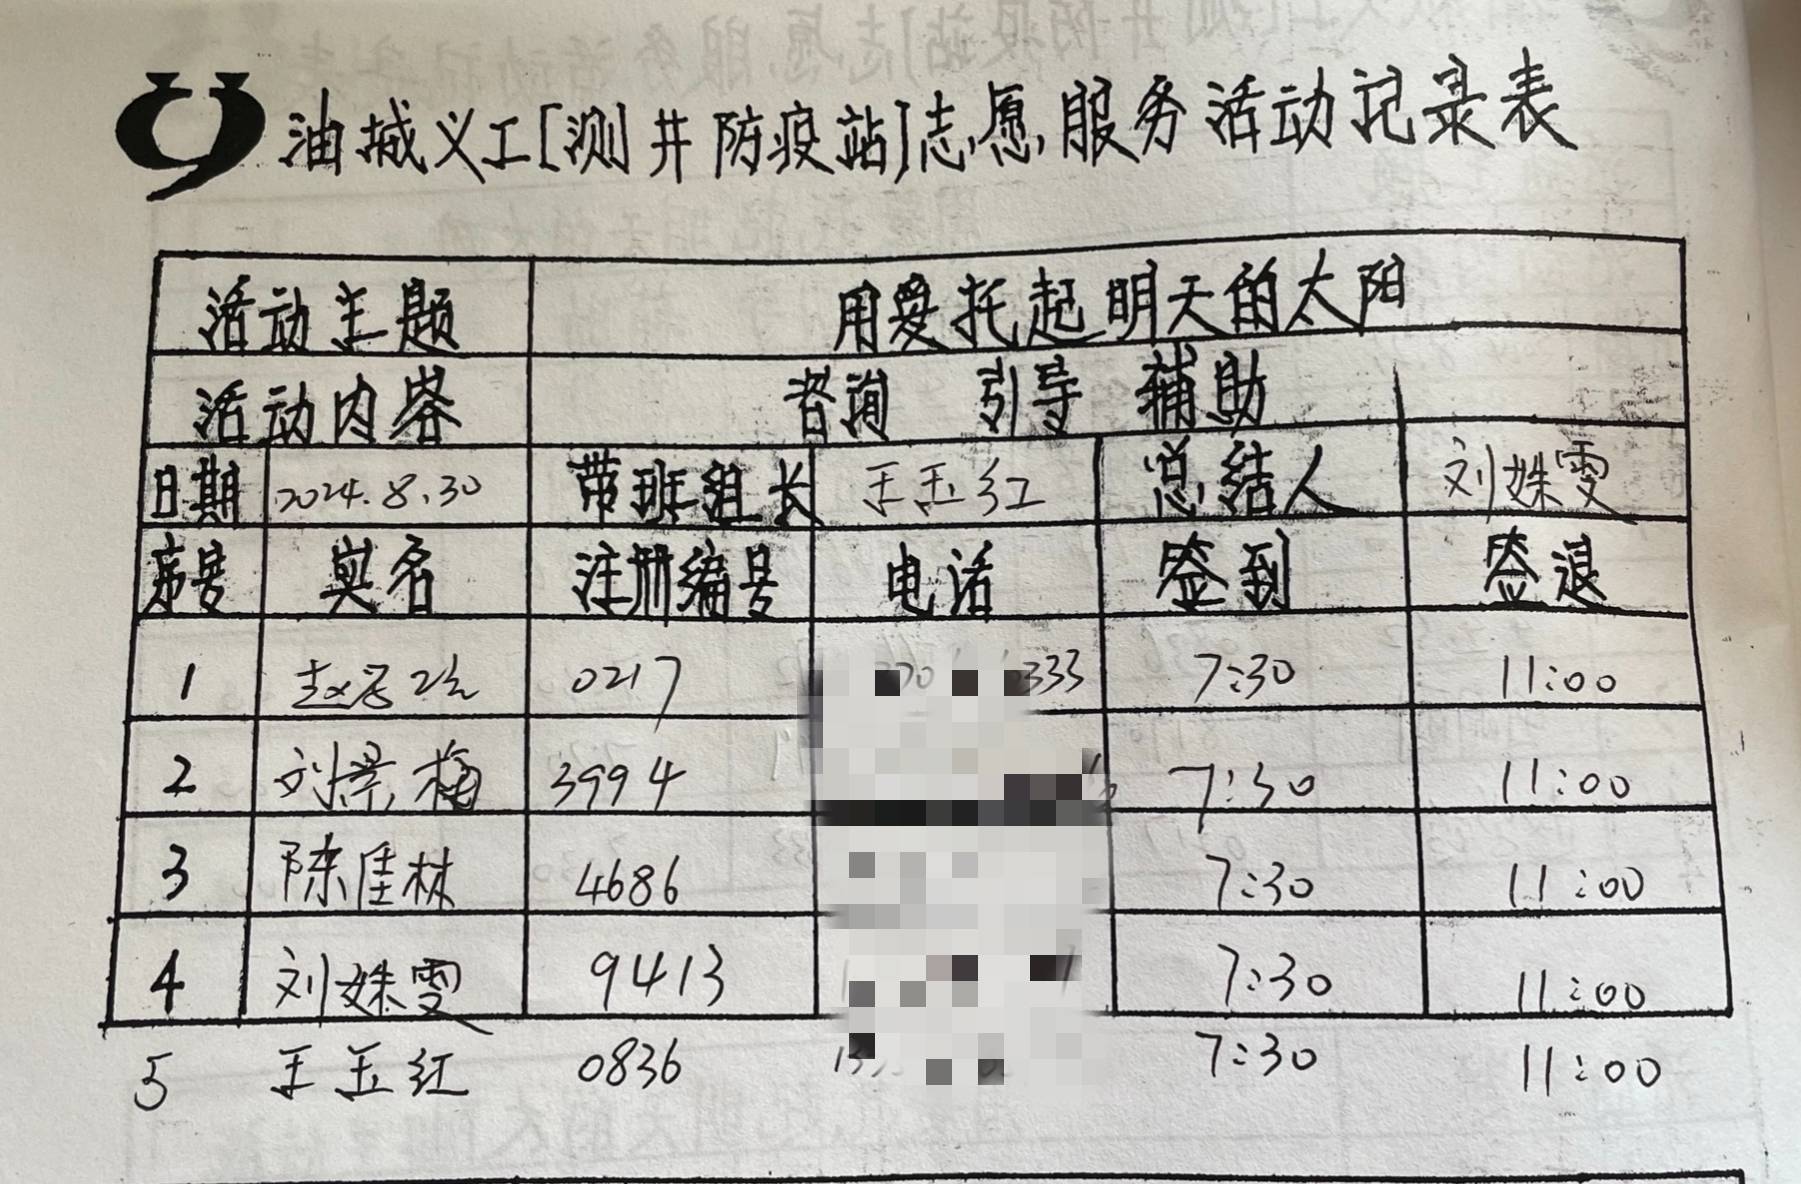 油城义工[测井防疫站]志愿服务活动记录表
活动主题 用爱托起明天的太阳
活动内容 咨询 引导 辅助
日期 2024.8.30 带班组长 王玉红 总结人 刘姝雯
序号 姓名 注册编号 电话 签到 签退
1 0217 333 7:30 11:00
2 刘景梅 3994 7:30 11:00
3 陈佳林 4686 7:30 11:00
4 刘姝雯 9413 7:30 11:00
5 王玉红 0836 7:30 11:00